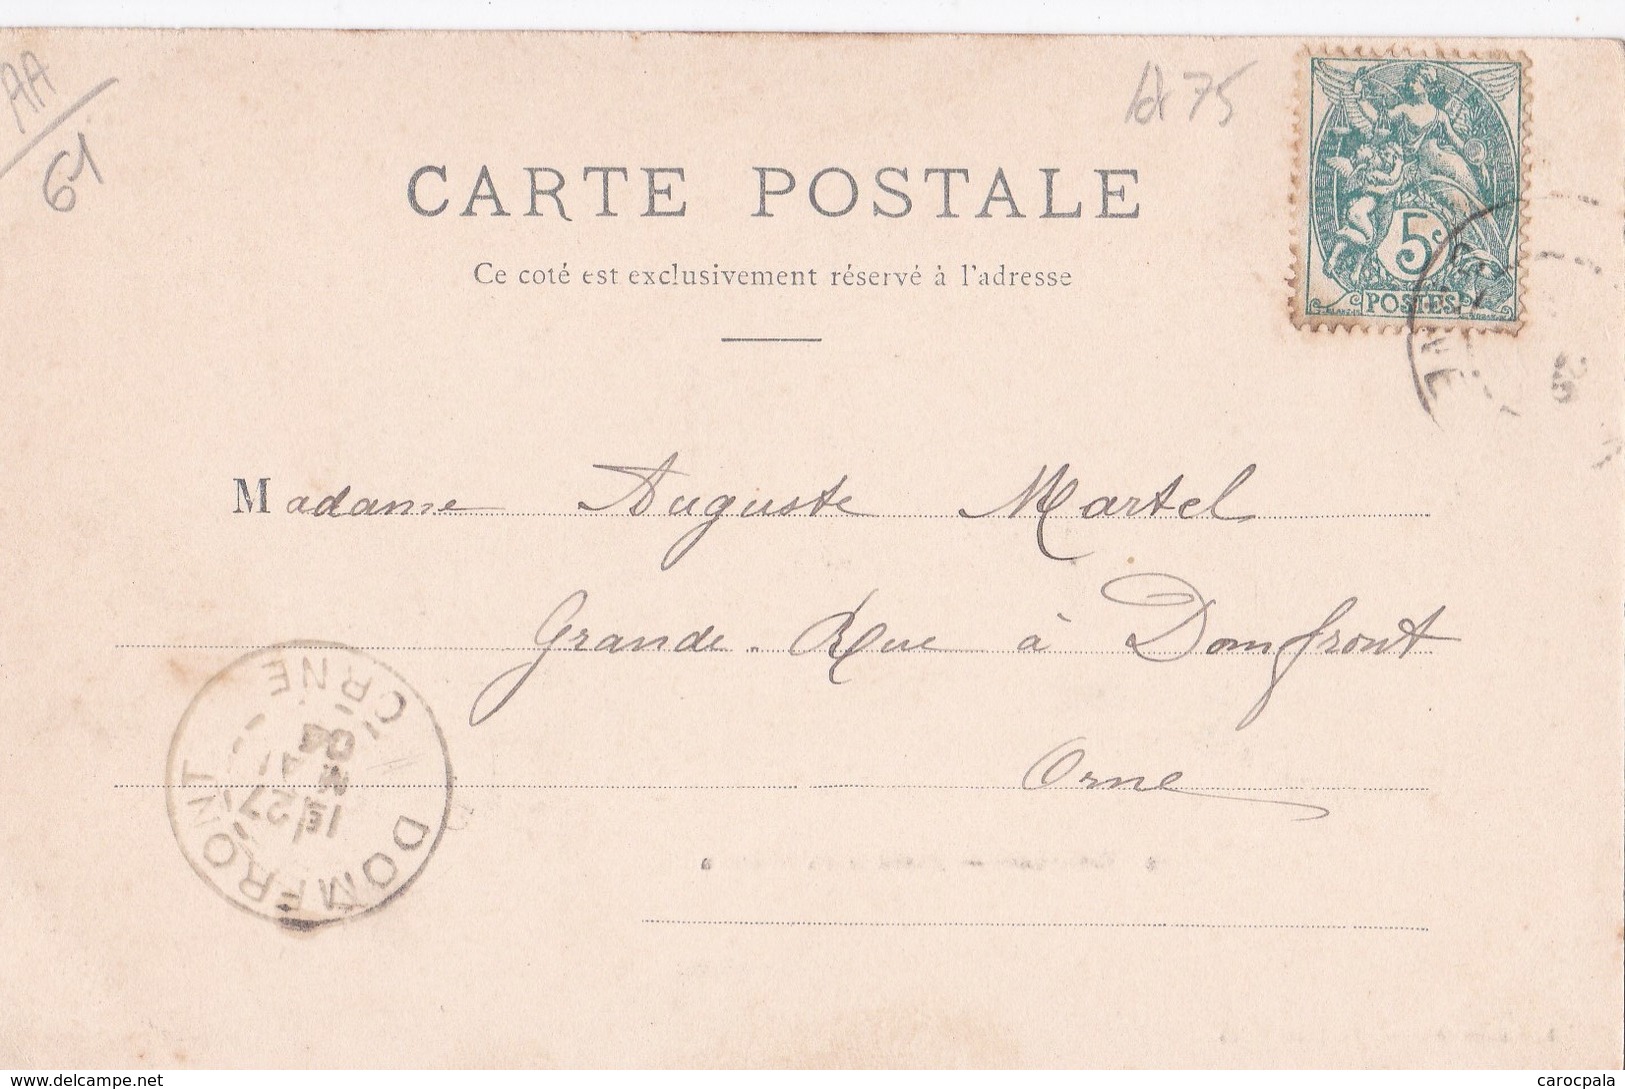 AA
61
lot 75
CARTE POSTALE
Ce coté est exclusivement réservé à l'adresse
5c
POSTES
Madame Auguste Martel
Grande-Rue à Domfront
Orne
DOMFRONT
15 27
MAI
04
ORNE
Postcards for sale on delcampe.net
carocpala